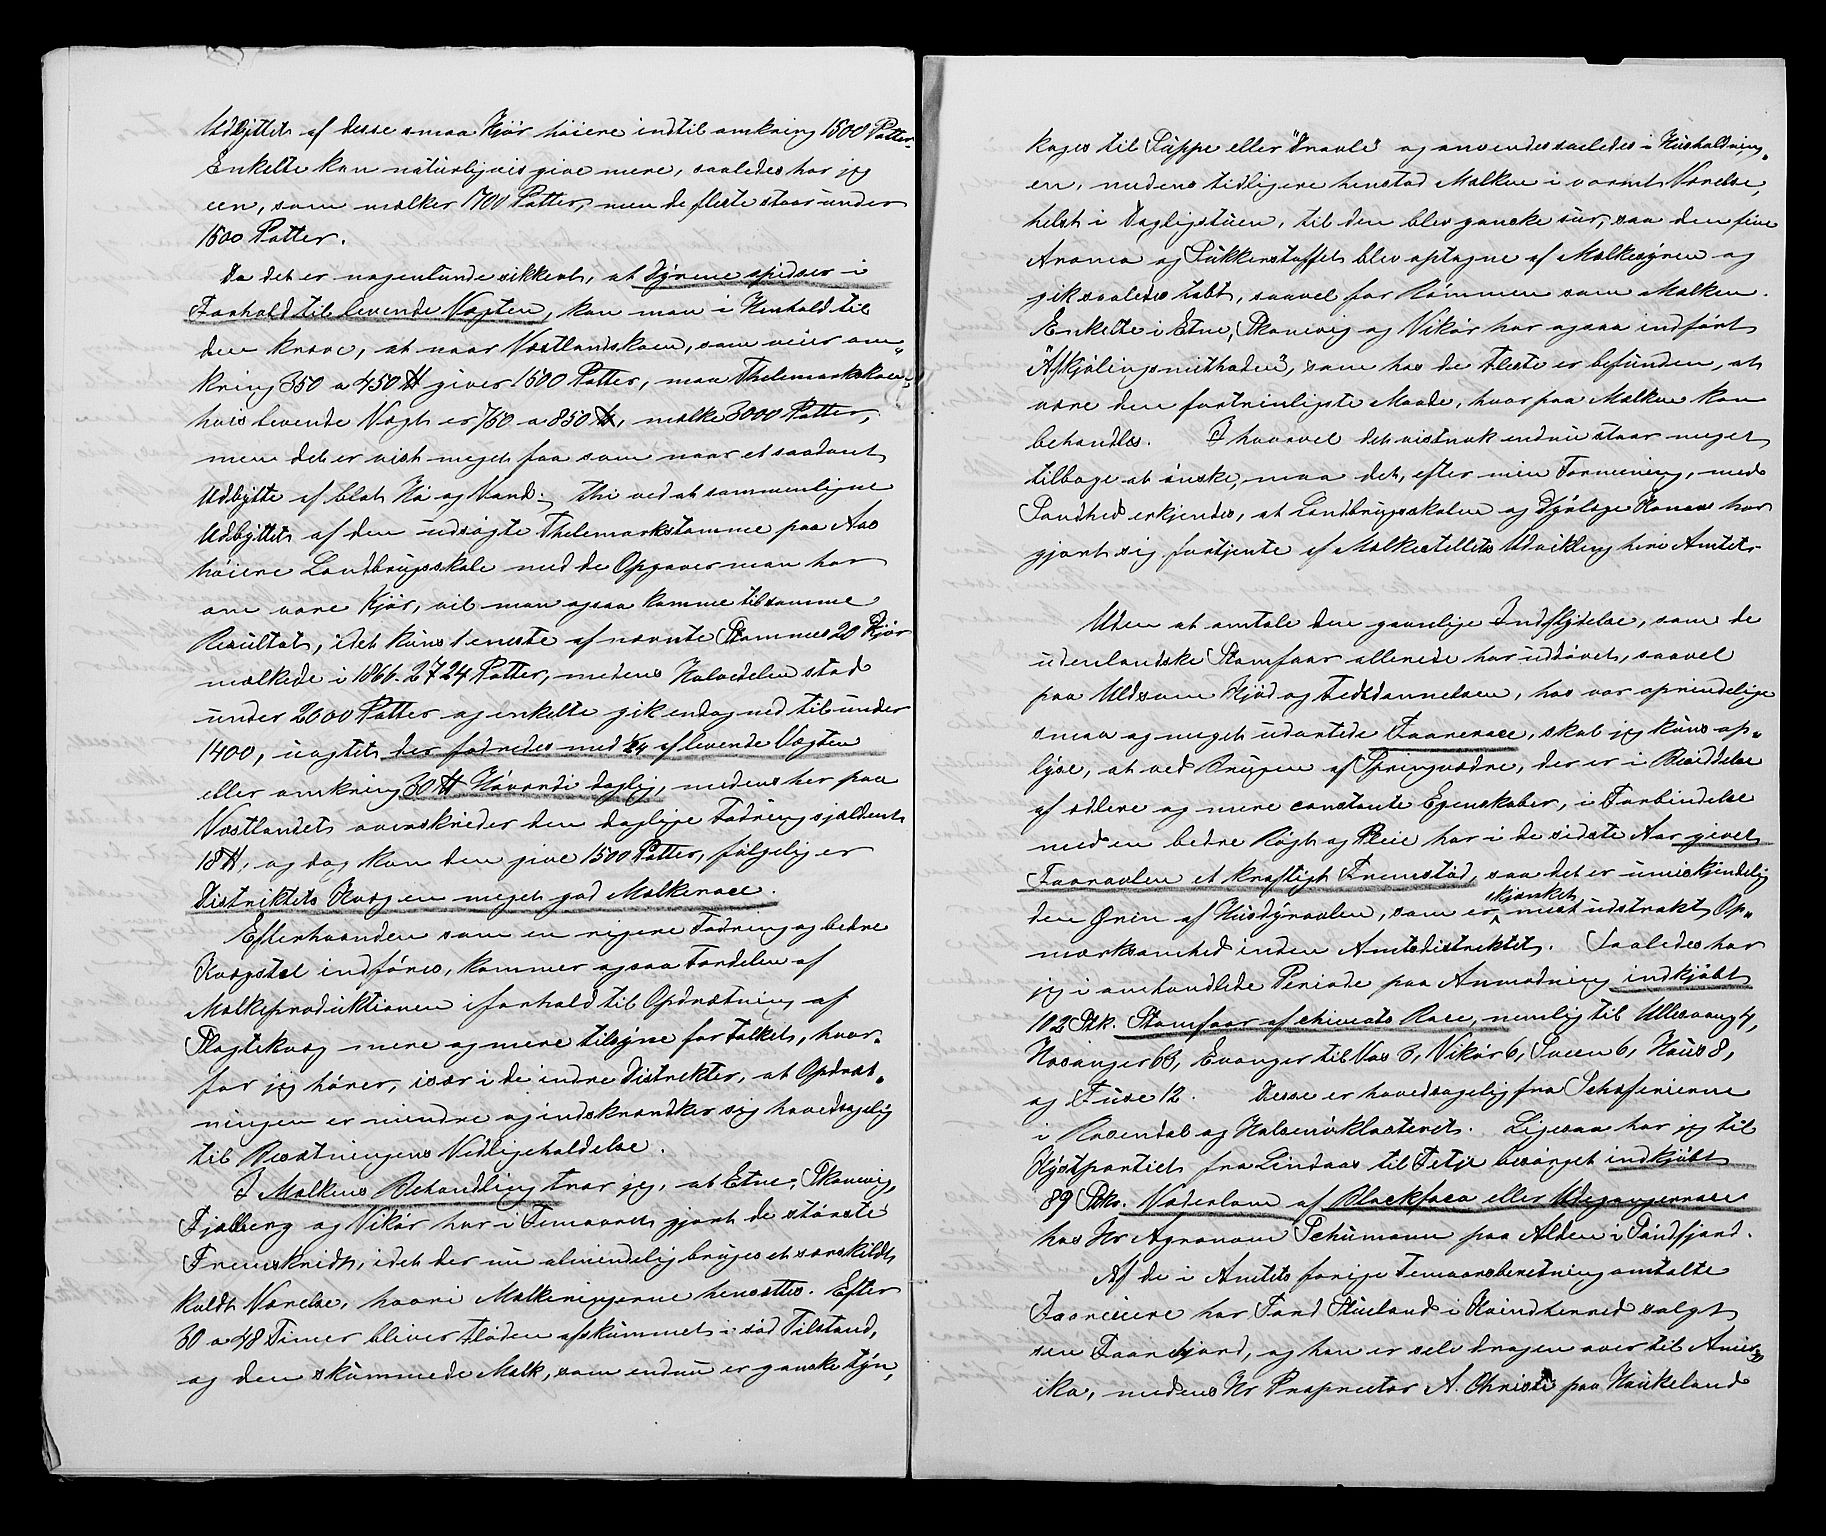 Udbyttet af desse smaa Kjør høiere indtil omkring 1500 Potter.
Enkelte kan naturligvis give mere, saaledes har jeg
een, som mælker 1700 Potter, men de fleste staar under
1500 Potter.
Da det er nogenlunde sikkert, at Dyrene spidser i
Forhold til levende Vægten, kan man i Henhold til
den kræve, at naar Vestlandskoen, som veier om„
kring 350 a 450 ℔ giver 1500 Potter, maa Thelemarkskoen,
hvis levende Vægt er 750 a 850 ℔, mælke 3000 Potter,
men det er vist meget faa som naar et saadant
Udbytte af blot Hø og Vand; thi ved at sammenligne
Udbyttet af den udsøgte Thelemarkstamme paa Aas
høiere Landbrugsskole med de Opgaver man har
om vore Kjør, vil man ogsaa komme til samme
Resultat, idet kuns 1 eneste af nævnte Stammes 20 Kjør
mælkede i 1866. 2724 Potter, medens Halvdelen stod
under 2000 Potter og enkelte gik endog ned til under
1400, uagtet der fodredes med 1/24 af levende Vægten
eller omkring 30 ℔ Høværdi daglig, medens her paa
Vestlandet overskrider den daglige Fodring sjældent
18 ℔, og dog kan den give 1500 Potter, følgelig er
Distriktets Kvæg en meget god Melkerace.
Efterhaanden som en rigere Fodring og bedre
Kvægstel indføres, kommer ogsaa Fordelen af
Mælkeproduktionen i forhold til Opdrætning af
Slagtekvæg mere og mere tilsyne for Folket, hvor„
for jeg hører, især i de indre Distrikter, at Opdræt„
ningen er mindre og indskrænker sig hovedsagelig
til Besætningens Vedligeholdelse.
I Mælkens Behandling tror jeg, at Etne, Skonevig,
Fjelberg og Vikør har i Femaaret gjort de største
Fremskridt, idet der nu almindelig bruges et særskildt
koldt Værelse, hvori Melkeringerne hensættes. Efter
30 a 48 Timer bliver Fløden afskummet i sød Tilstand,
og den skummede Melk, som endnu er ganske tyn,
koges til Suppe eller "Dravle" og anvendes saaledes i Husholdning„
en, medens tidligere henstod Mælken i varmt Værelse,
helst i Dagligstuen, til den blev ganske sur, saa den fine
Aroma og Sukkerstoffet blev optagne af Melkesyren og
gik saaledes tabt, saavel for Rømmen som Melken.
Enkelte i Etne, Skonevig og Vikør har ogsaa indført
"Afkjølingsmethoden", som hos de fleste er befunden, at
være den fortrinligste Maade, hvorpaa Mælken kan
behandles. Ihvorvel det vistnok endnu staar meget
tilbage at ønske, maa det, efter min Formening, med
Sandhed erkjendes, at Landbrugsskolen og Dyrlæge Konow har
gjort sig fortjente af Melkestellets Udvikling her i Amtet.
Uden at omtale den gavnlige Indflydelse, som de
udenlandske Stamfaar allerede har uddøvet, saavel
paa Uld som Kjød og Fedtdannelsen, hos vor oprindelige
smaa og meget udartede Faarerace, skal jeg kuns op„
lyse, at ved Brugen af Springvædre, der er i Besiddelse
af ædlere og mere constante Egenskaber, i Forbindelse
med en bedre Røgt og Pleie har i de sidste Aar givet
Faaravlen et kraftigt Fremstød, saa det er umiskjendelig
den Gren af Husdyravlen, som er skjænket mest udstrakt Op„
mærksomhed inden Amtsdistriktet. Saaledes har
jeg i omhandlede Periode paa Anmodning indkjøbt
102 Stk. Stamfaar af cheviots Race, nemlig til Ullensvang 4,
Hosanger 63, Evanger til Vos 3, Vikør 6, Sveen 6, Haus 8,
og Fuse 12. Disse er hovedsagelig fra Schæferierne
i Rosendal og Halsenøklosteret. Ligesaa har jeg til
Kystpartiet fra Lindaas til Fetje besørget indkjøbt
89 Stks. Væderlam af Blackfaca eller Udegangerrace
hos Hr Agronom Schumann paa Alden i Søndfjord.
Af de i Amtets forige Femaarsberetning omtalte
Faareeiere har Tord Hueland i Kvindherred solgt
sin Faarehjord, og han er selv dragen over til Amer„
ika, medens Hr Proprietær A. Christi paa Haukeland